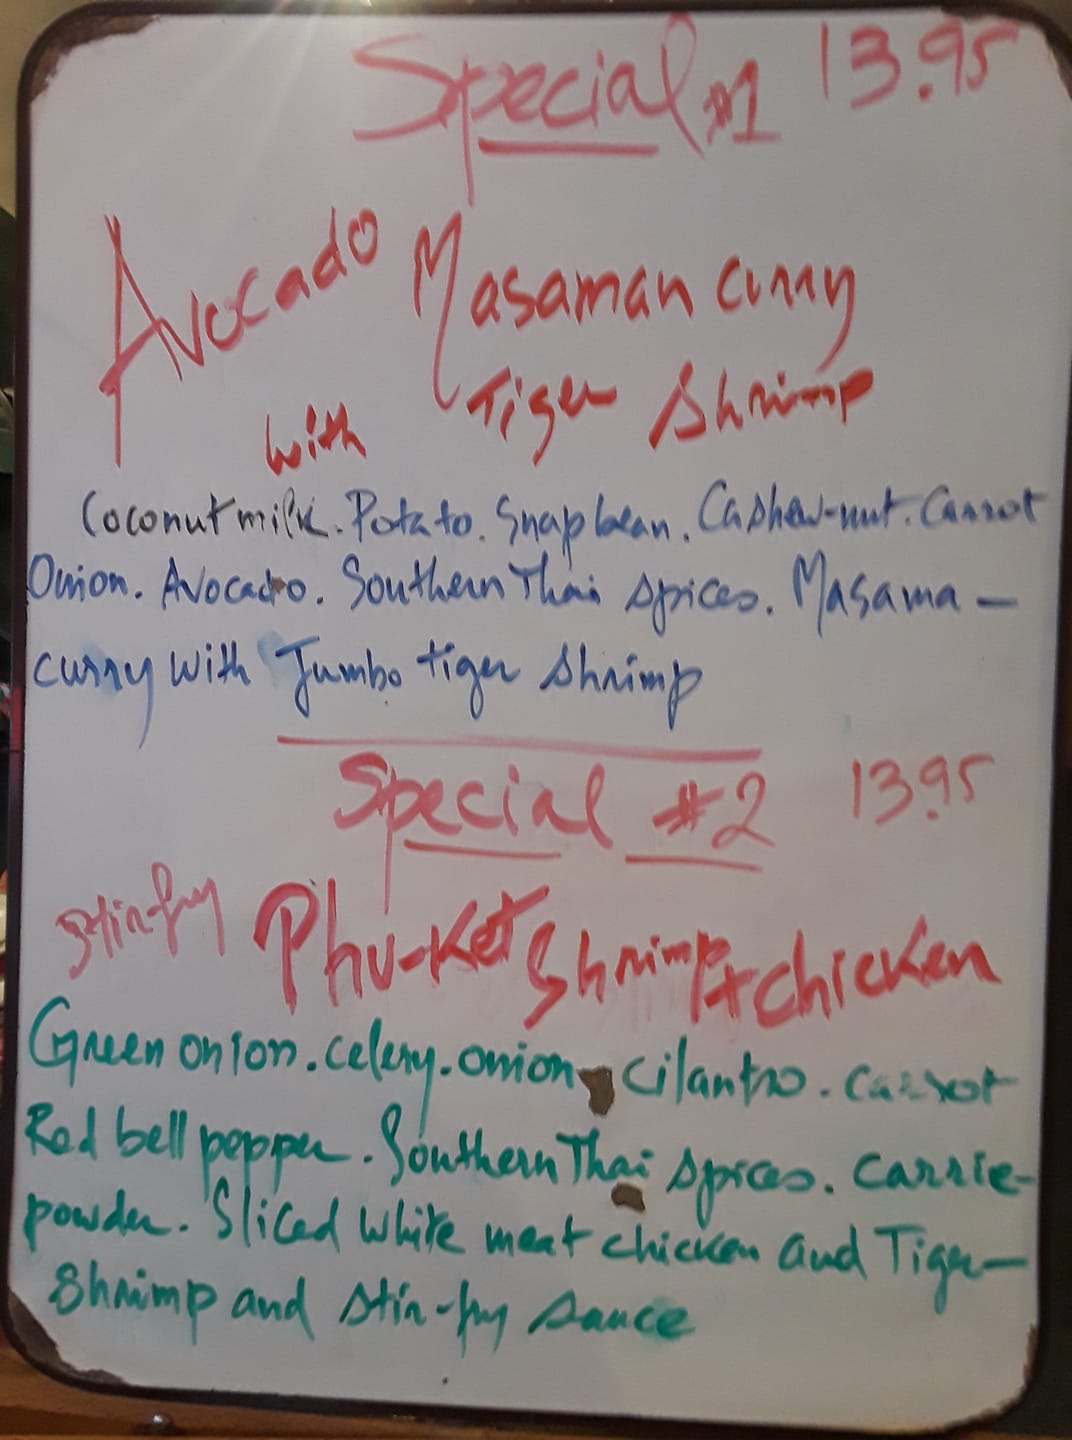 Special #1 13.95
Avocado Masaman curry
with Tiger Shrimp
Coconut milk. Potato. Snap bean. Cashew-nut. Carrot
Onion. Avocado. Southern Thai spices. Masama-
curry with Jumbo tiger shrimp
Special #2 13.95
Stir-fry Phu-Ket Shrimp + chicken
Green onion. celery. onion cilantro. Carrot
Red bell pepper. Southern Thai spices. Carrie-
powder. Sliced white meat chicken and Tiger-
Shrimp and stir-fry sauce